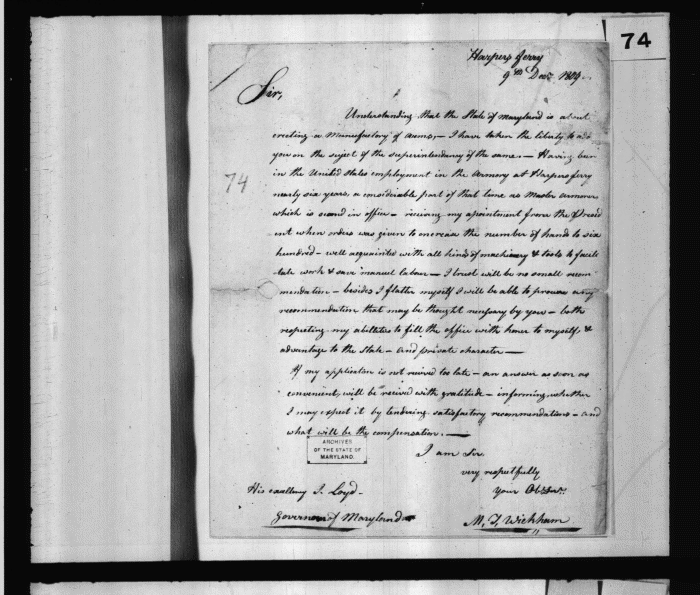 74
Harpers ferry
9th Decr 1809.
Sir,
Understanding that the State of maryland is about
erecting a Manufactory of arms,— I have taken the liberty to
you on the suject of the superintendency of the same — Having been
74
in the United States employment in the armory at Harpers ferry
nearly six years, a considerable part of that time as Master armorer
which is second in office — reciving my apointment from the Presid
ent when orders was given to increase the number of hands to six
hundred — well acquainted with all kinds of machinery & tools to facili
tate work & save manuel labour — I trust will be no small recom
mendation — besides I flatter myself I will be able to procure any
recommendation that may be thought nessary by you — both
respecting my abilities to fill the office with honor to myself &
advantage to the State — and private character —
If my application is not reived too late — an answer as soon as
convenient, will be recived with gratitude — informing whether
I may expect it by tendering satisfactory recommendations — and
what will be the compensation. —
ARCHIVES
OF THE STATE OF
MARYLAND.
I am Sir.
very respectfully
Your Obt Srt.
His exellency I. Loyd —
Governor of Maryland
M. T. Wickham